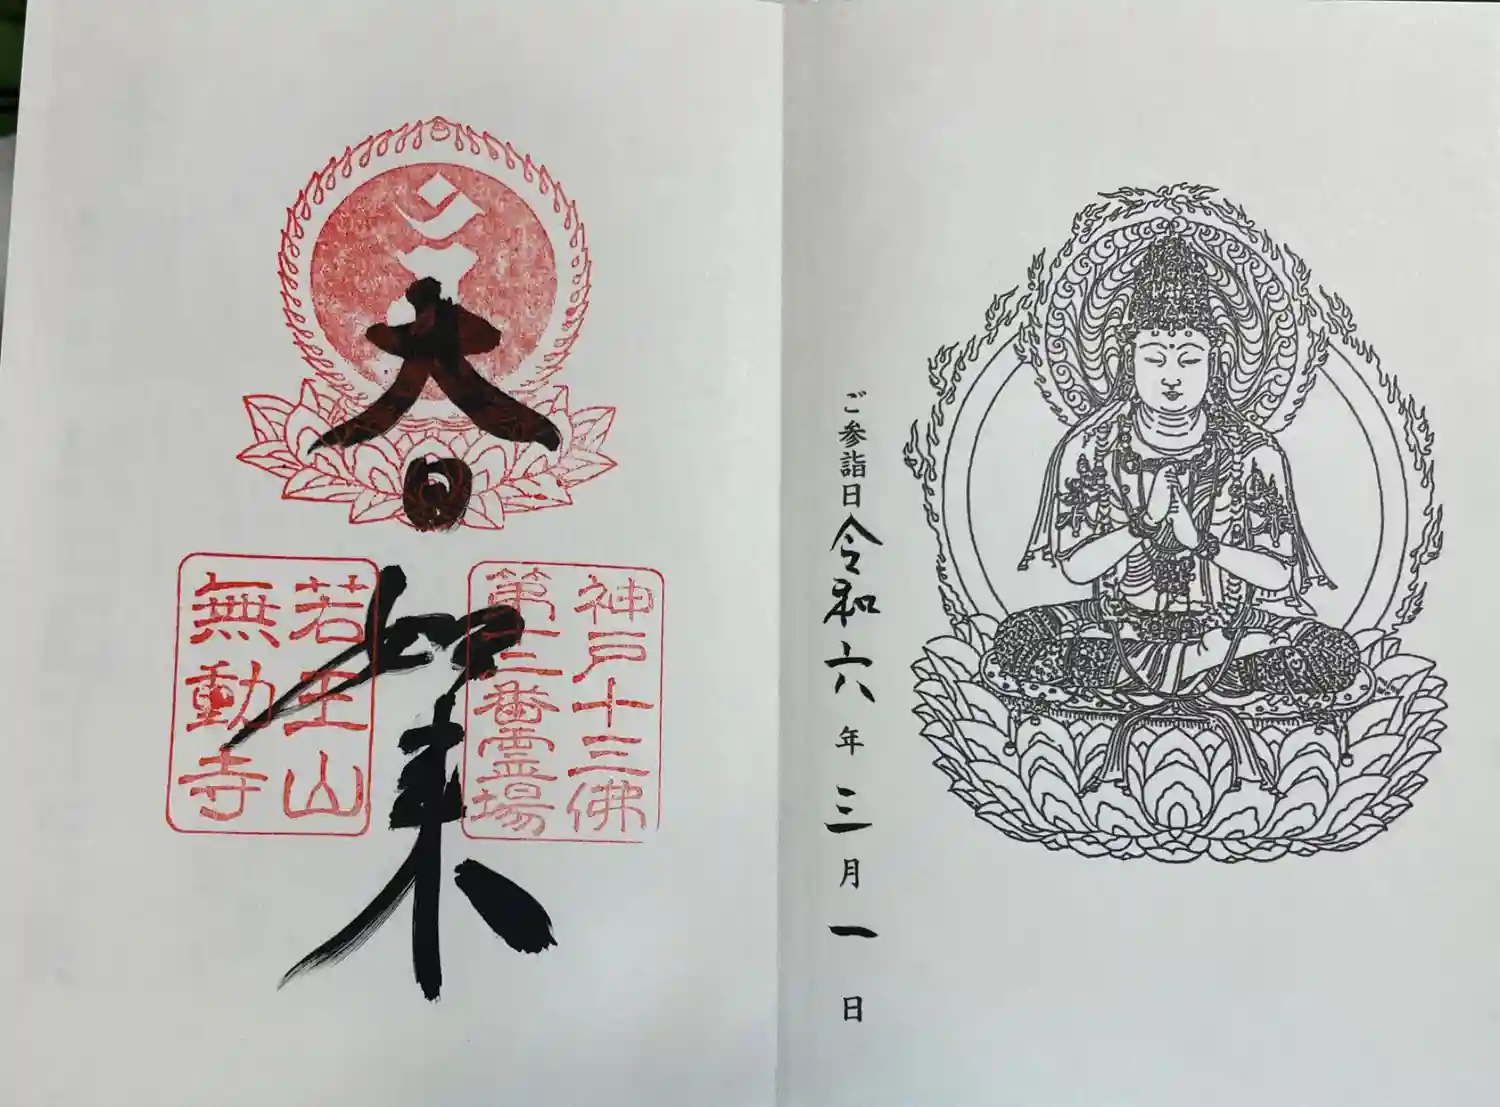 ご参詣日令和六年三月一日
大日如来
神戸十三佛
第十二番霊場
若王山
無動寺